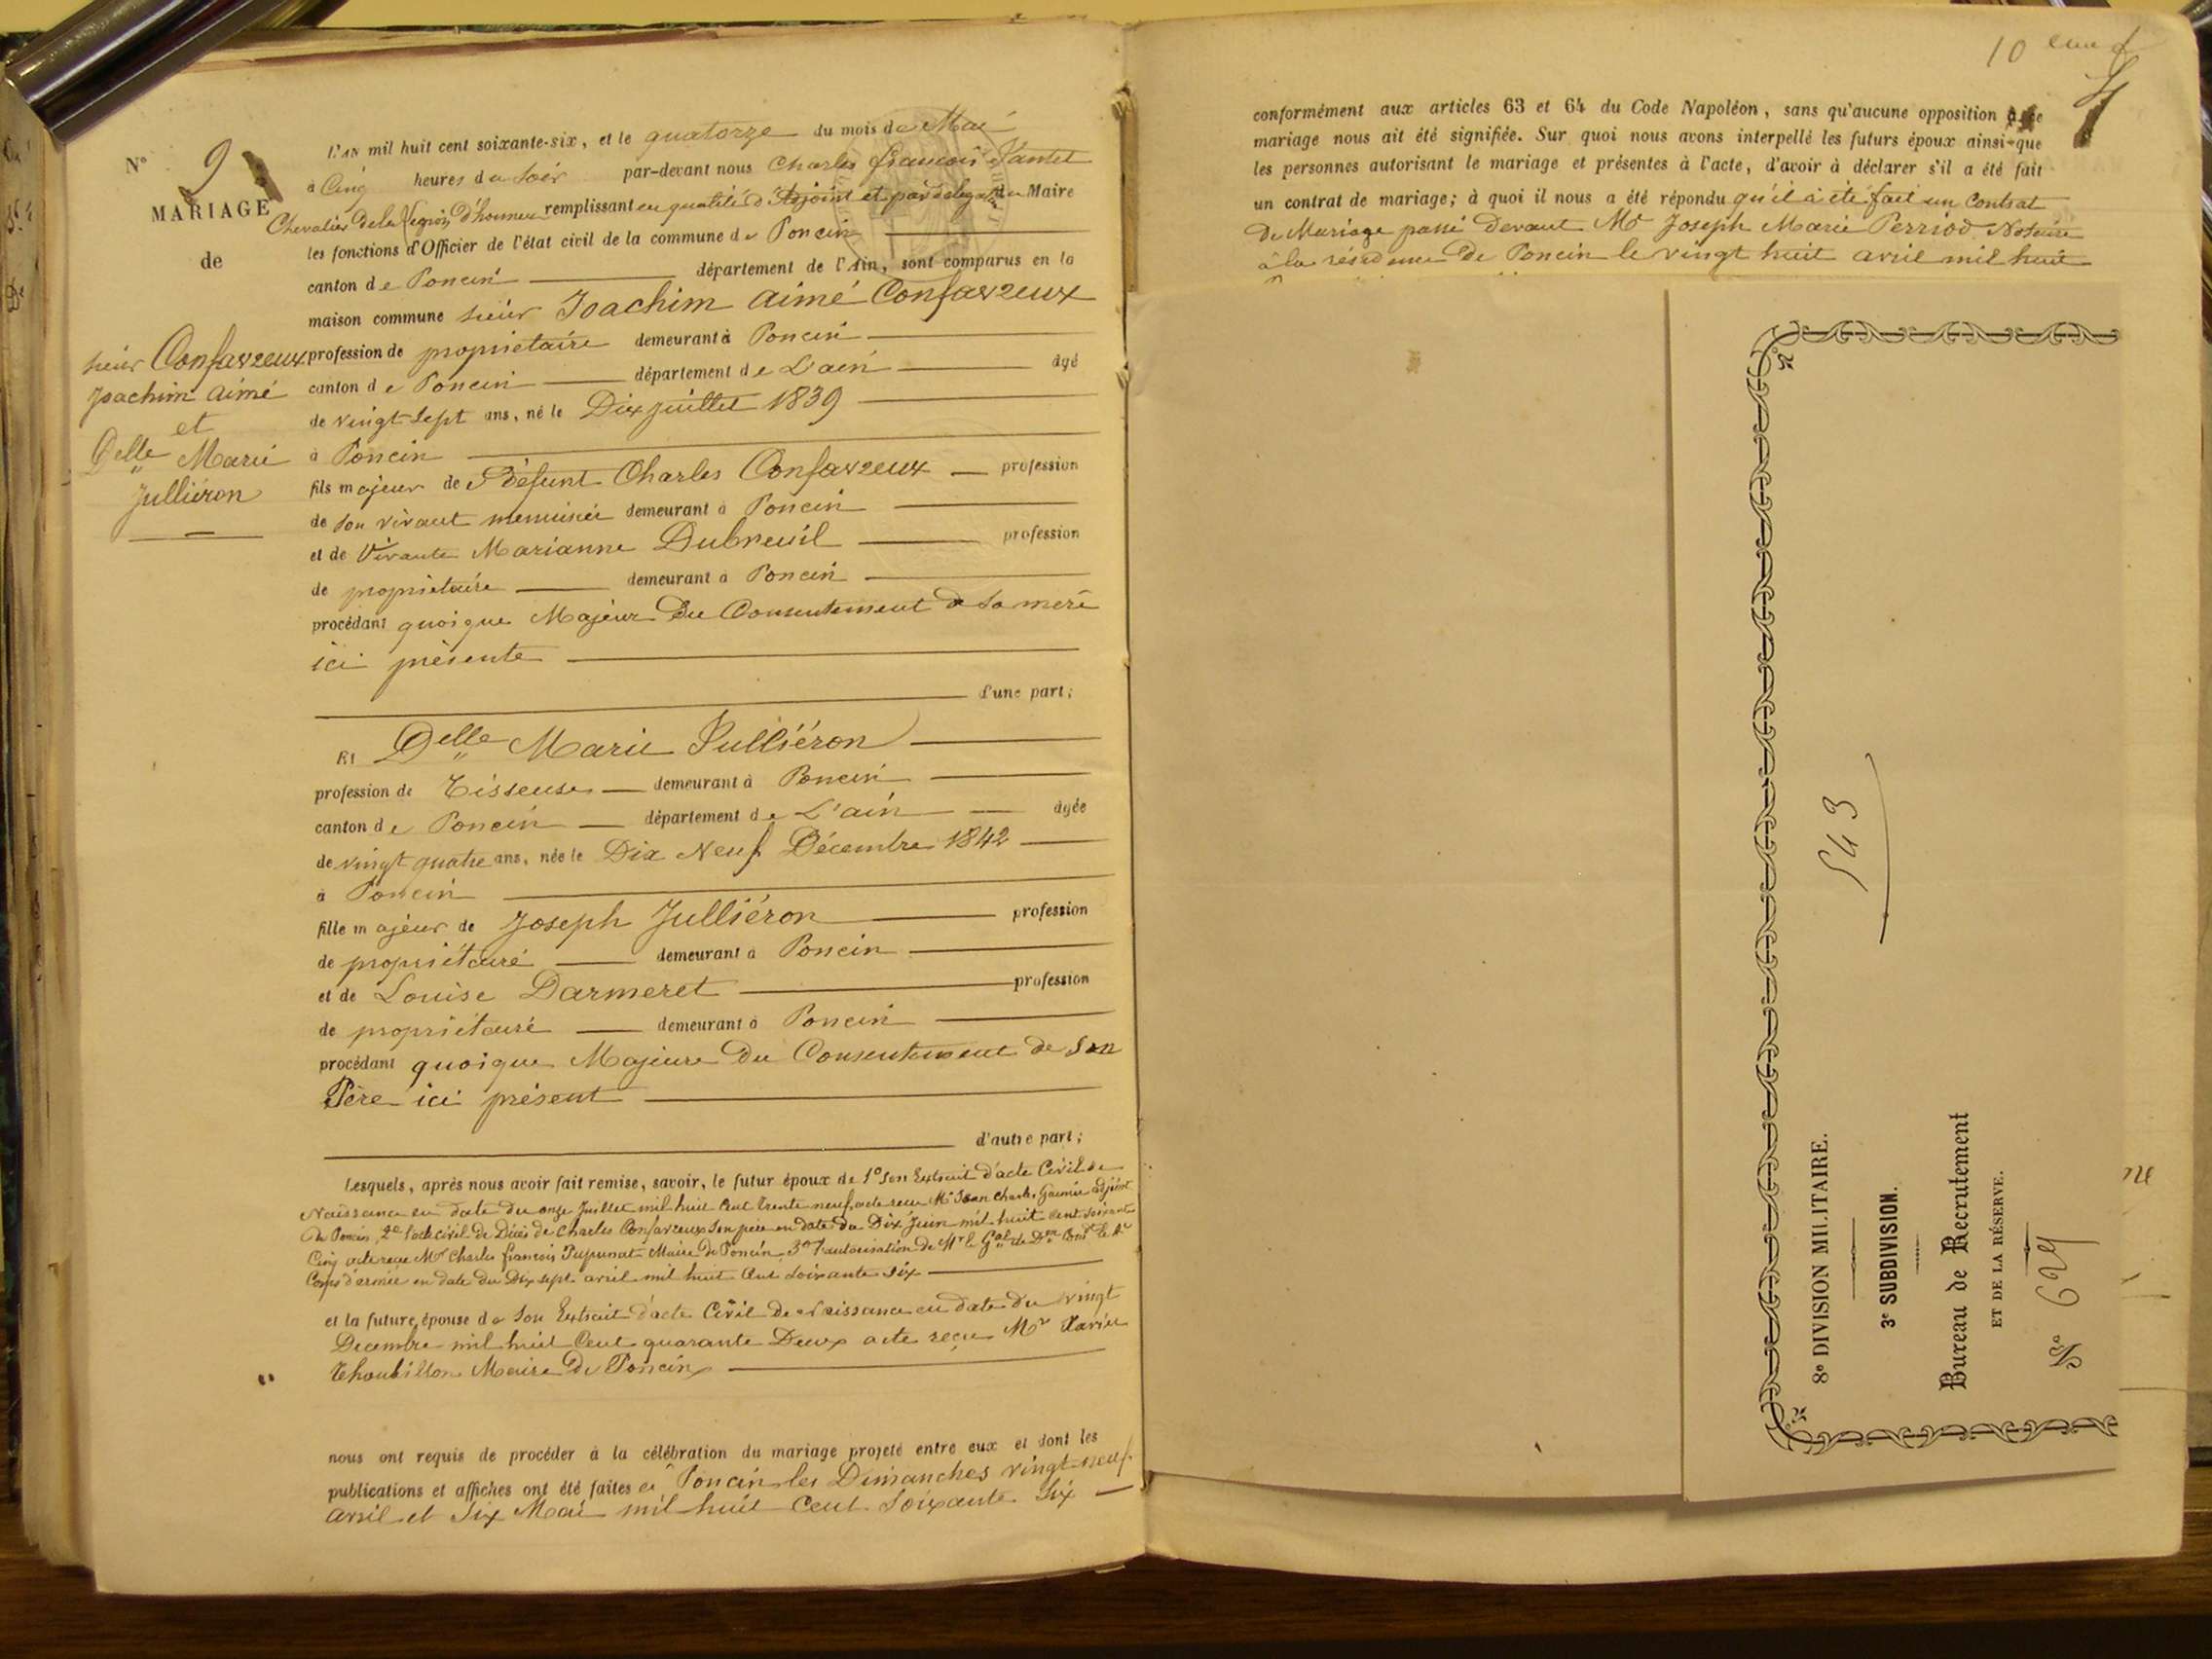 N° 9
MARIAGE
de
sieur Confavreux
Joachim aimé
et
Delle Marie
Julliéron
L'AN mil huit cent soixante-six, et le quatorze du mois de Mai
à Cinq heures du Soir par-devant nous Charles françois
Chevalier de la Légion d'honneur remplissant en qualité d'Adjoint et par délégation du Maire
les fonctions d'Officier de l'état civil de la commune de Poncin
canton de Poncin département de l'Ain, sont comparus en la
maison commune sieur Joachim aimé Confavreux
profession de propriétaire demeurant à Poncin
canton de Poncin département de L'ain âgé
de vingt sept ans, né le Dix juillet 1839
à Poncin
fils majeur de Défunt Charles Confavreux profession
de son vivant menuisier demeurant à Poncin
et de Vivante Marianne Dubreuil profession
de propriétaire demeurant à Poncin
procédant quoique Majeur Du Consentement de sa mère
ici présente
d'une part;
Et Delle Marie Julliéron
profession de Tisseuse demeurant à Poncin
canton de Poncin département de L'ain âgée
de vingt quatre ans, née le Dix Neuf Décembre 1842
à Poncin
fille majeur de Joseph Julliéron profession
de propriétaire demeurant à Poncin
et de Louise Darmeret profession
de propriétaire demeurant à Poncin
procédant quoique Majeure Du Consentement de son
Père ici présent
d'autre part;
Lesquels, après nous avoir fait remise, savoir, le futur époux de 1° son Extrait d'acte Civil de
Naissance en date du onze Juillet mil huit Cent Trente neuf acte reçu Mr Jean Charles adjoint
de Poncin, 2° l'acte civil de Décès de Charles Confavreux son père en date du Dix Juin mil huit cent soixante
Cinq acte reçu Mr Charles françois Maire de Poncin, 3° l'autorisation de Mr le Gal de Don Comt le 4e
Corps d'armée en date du Dix sept avril mil huit Cent soixante six
et la future épouse de son Extrait d'acte Civil de Naissance en date du vingt
Decembre mil huit Cent quarante Deux acte reçu Mr Xavier
Maire De Poncin
nous ont requis de procéder à la célébration du mariage projeté entre eux et dont les
publications et affiches ont été faites à Poncin les Dimanches vingt neuf
avril et six Mai mil huit Cent Soixante Six
10
conformément aux articles 63 et 64 du Code Napoléon, sans qu'aucune opposition à ce
mariage nous ait été signifiée. Sur quoi nous avons interpellé les futurs époux ainsi que
les personnes autorisant le mariage et présentes à l'acte, d'avoir à déclarer s'il a été fait
un contrat de mariage; à quoi il nous a été répondu qu'il a été fait un Contrat
De Mariage passé Devant Me Joseph Marie Perriod Notaire
à la résidence De Poncin le vingt huit avril mil huit
543
8e DIVISION MILITAIRE.
3e SUBDIVISION.
Bureau de Recrutement
ET DE LA RÉSERVE.
No 629
ne